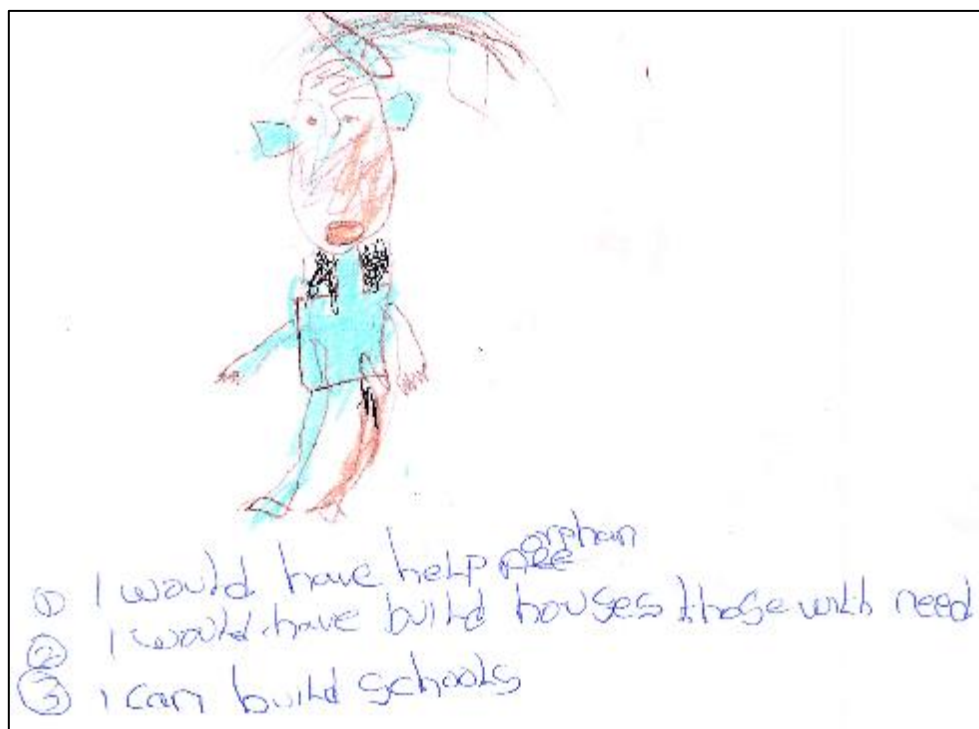 ① I would have help orphan
② I would have build houses those with need
③ I can build schools